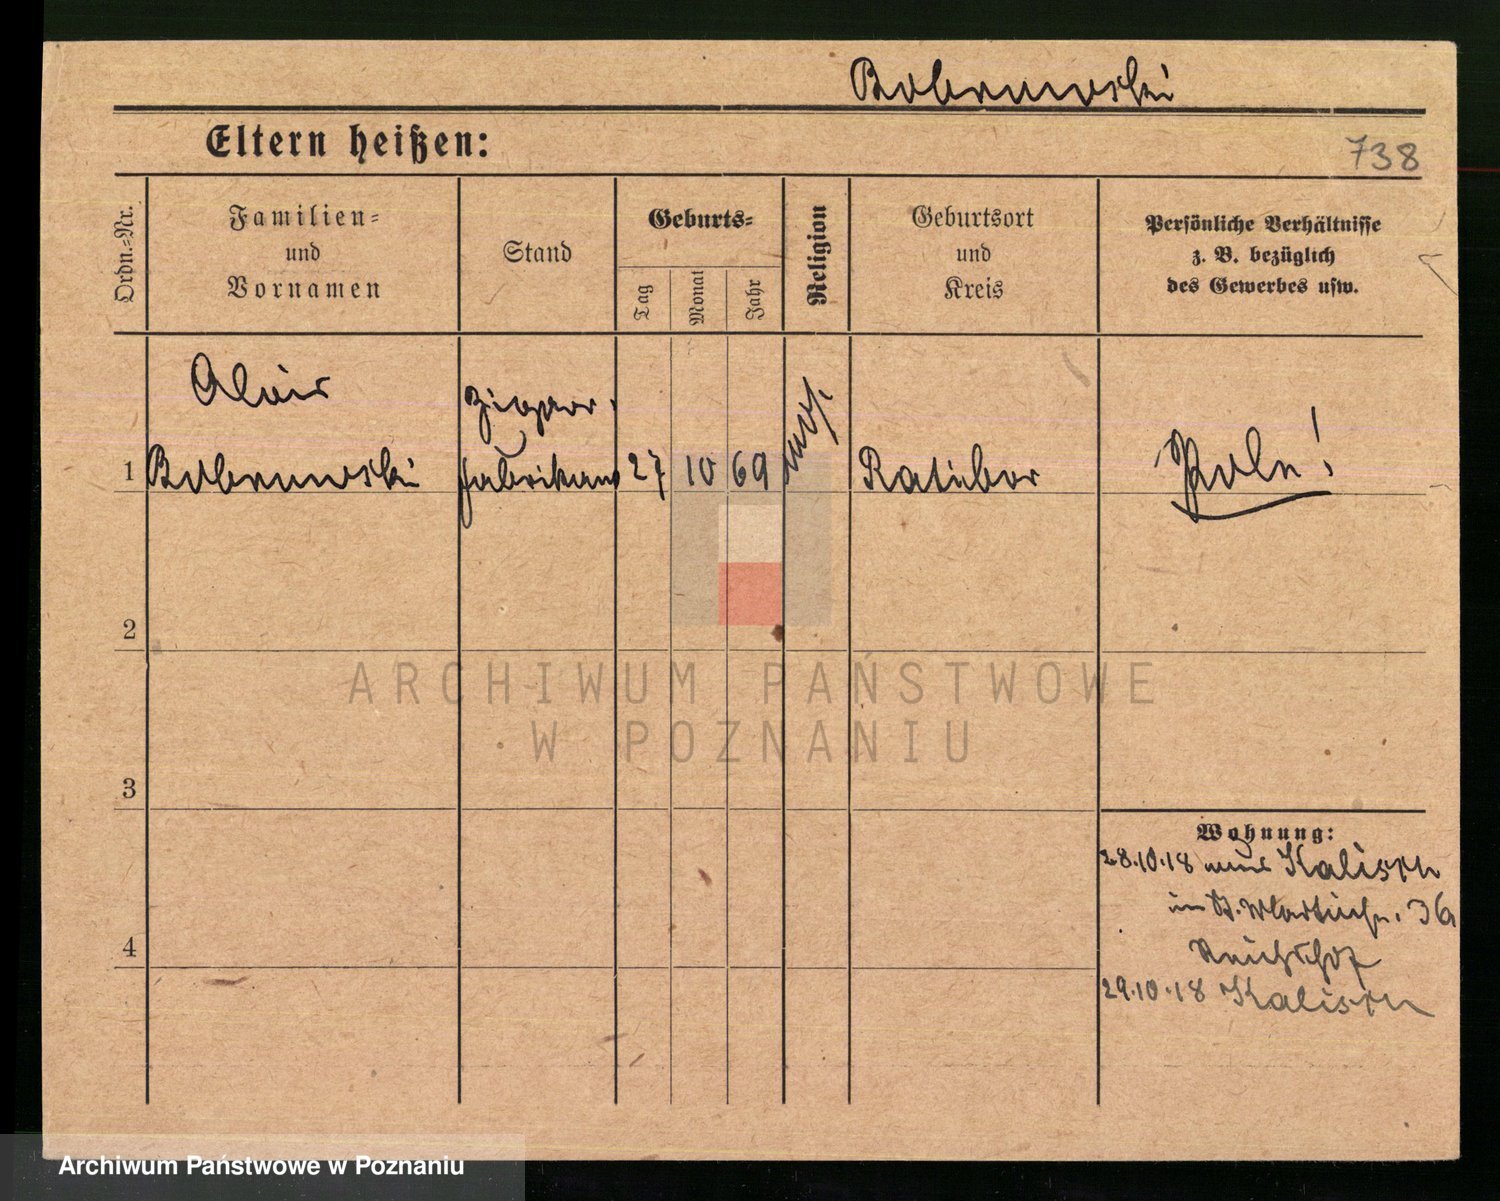 Bobrunwski
Eltern heißen:
738
Ordn.=Nr.
Familien=
und
Vornamen
Stand
Geburts=
Tag
Monat
Jahr
Religion
Geburtsort
und
Kreis
Persönliche Verhältnisse
z. B. bezüglich
des Gewerbes usw.
Alois
Zigarr.
1 fabrikant 27 10 69 Ratibor Pole!
2
3
4
Wohnung:
28.10.18 aus Kalisch
in St. Martinstr. 36
Reichshof
29.10.18 Kalisch
ARCHIWUM PAŃSTWOWE
W POZNANIU
Archiwum Państwowe w Poznaniu